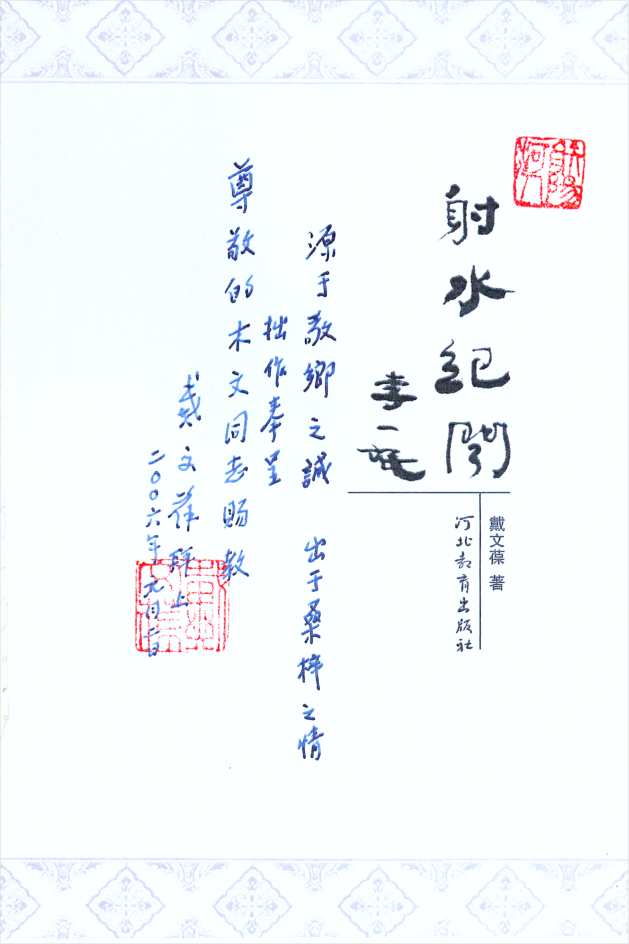 射水紀聞
李一氓
戴文葆 著
河北教育出版社
源于敬鄉之誠 出于桑梓之情
拙作奉呈
尊敬的木文同志賜教
戴文葆 拜上
二〇〇六年元月二日